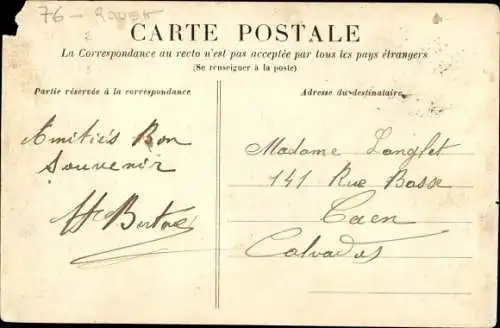 76 - ROUEN
CARTE POSTALE
La Correspondance au recto n'est pas acceptée par tous les pays étrangers
(Se renseigner à la poste)
Partie réservée à la correspondance
Adresse du destinataire
Amitiés Bon
Souvenir
Madame Langlet
141 Rue Basse
Caen
Calvados